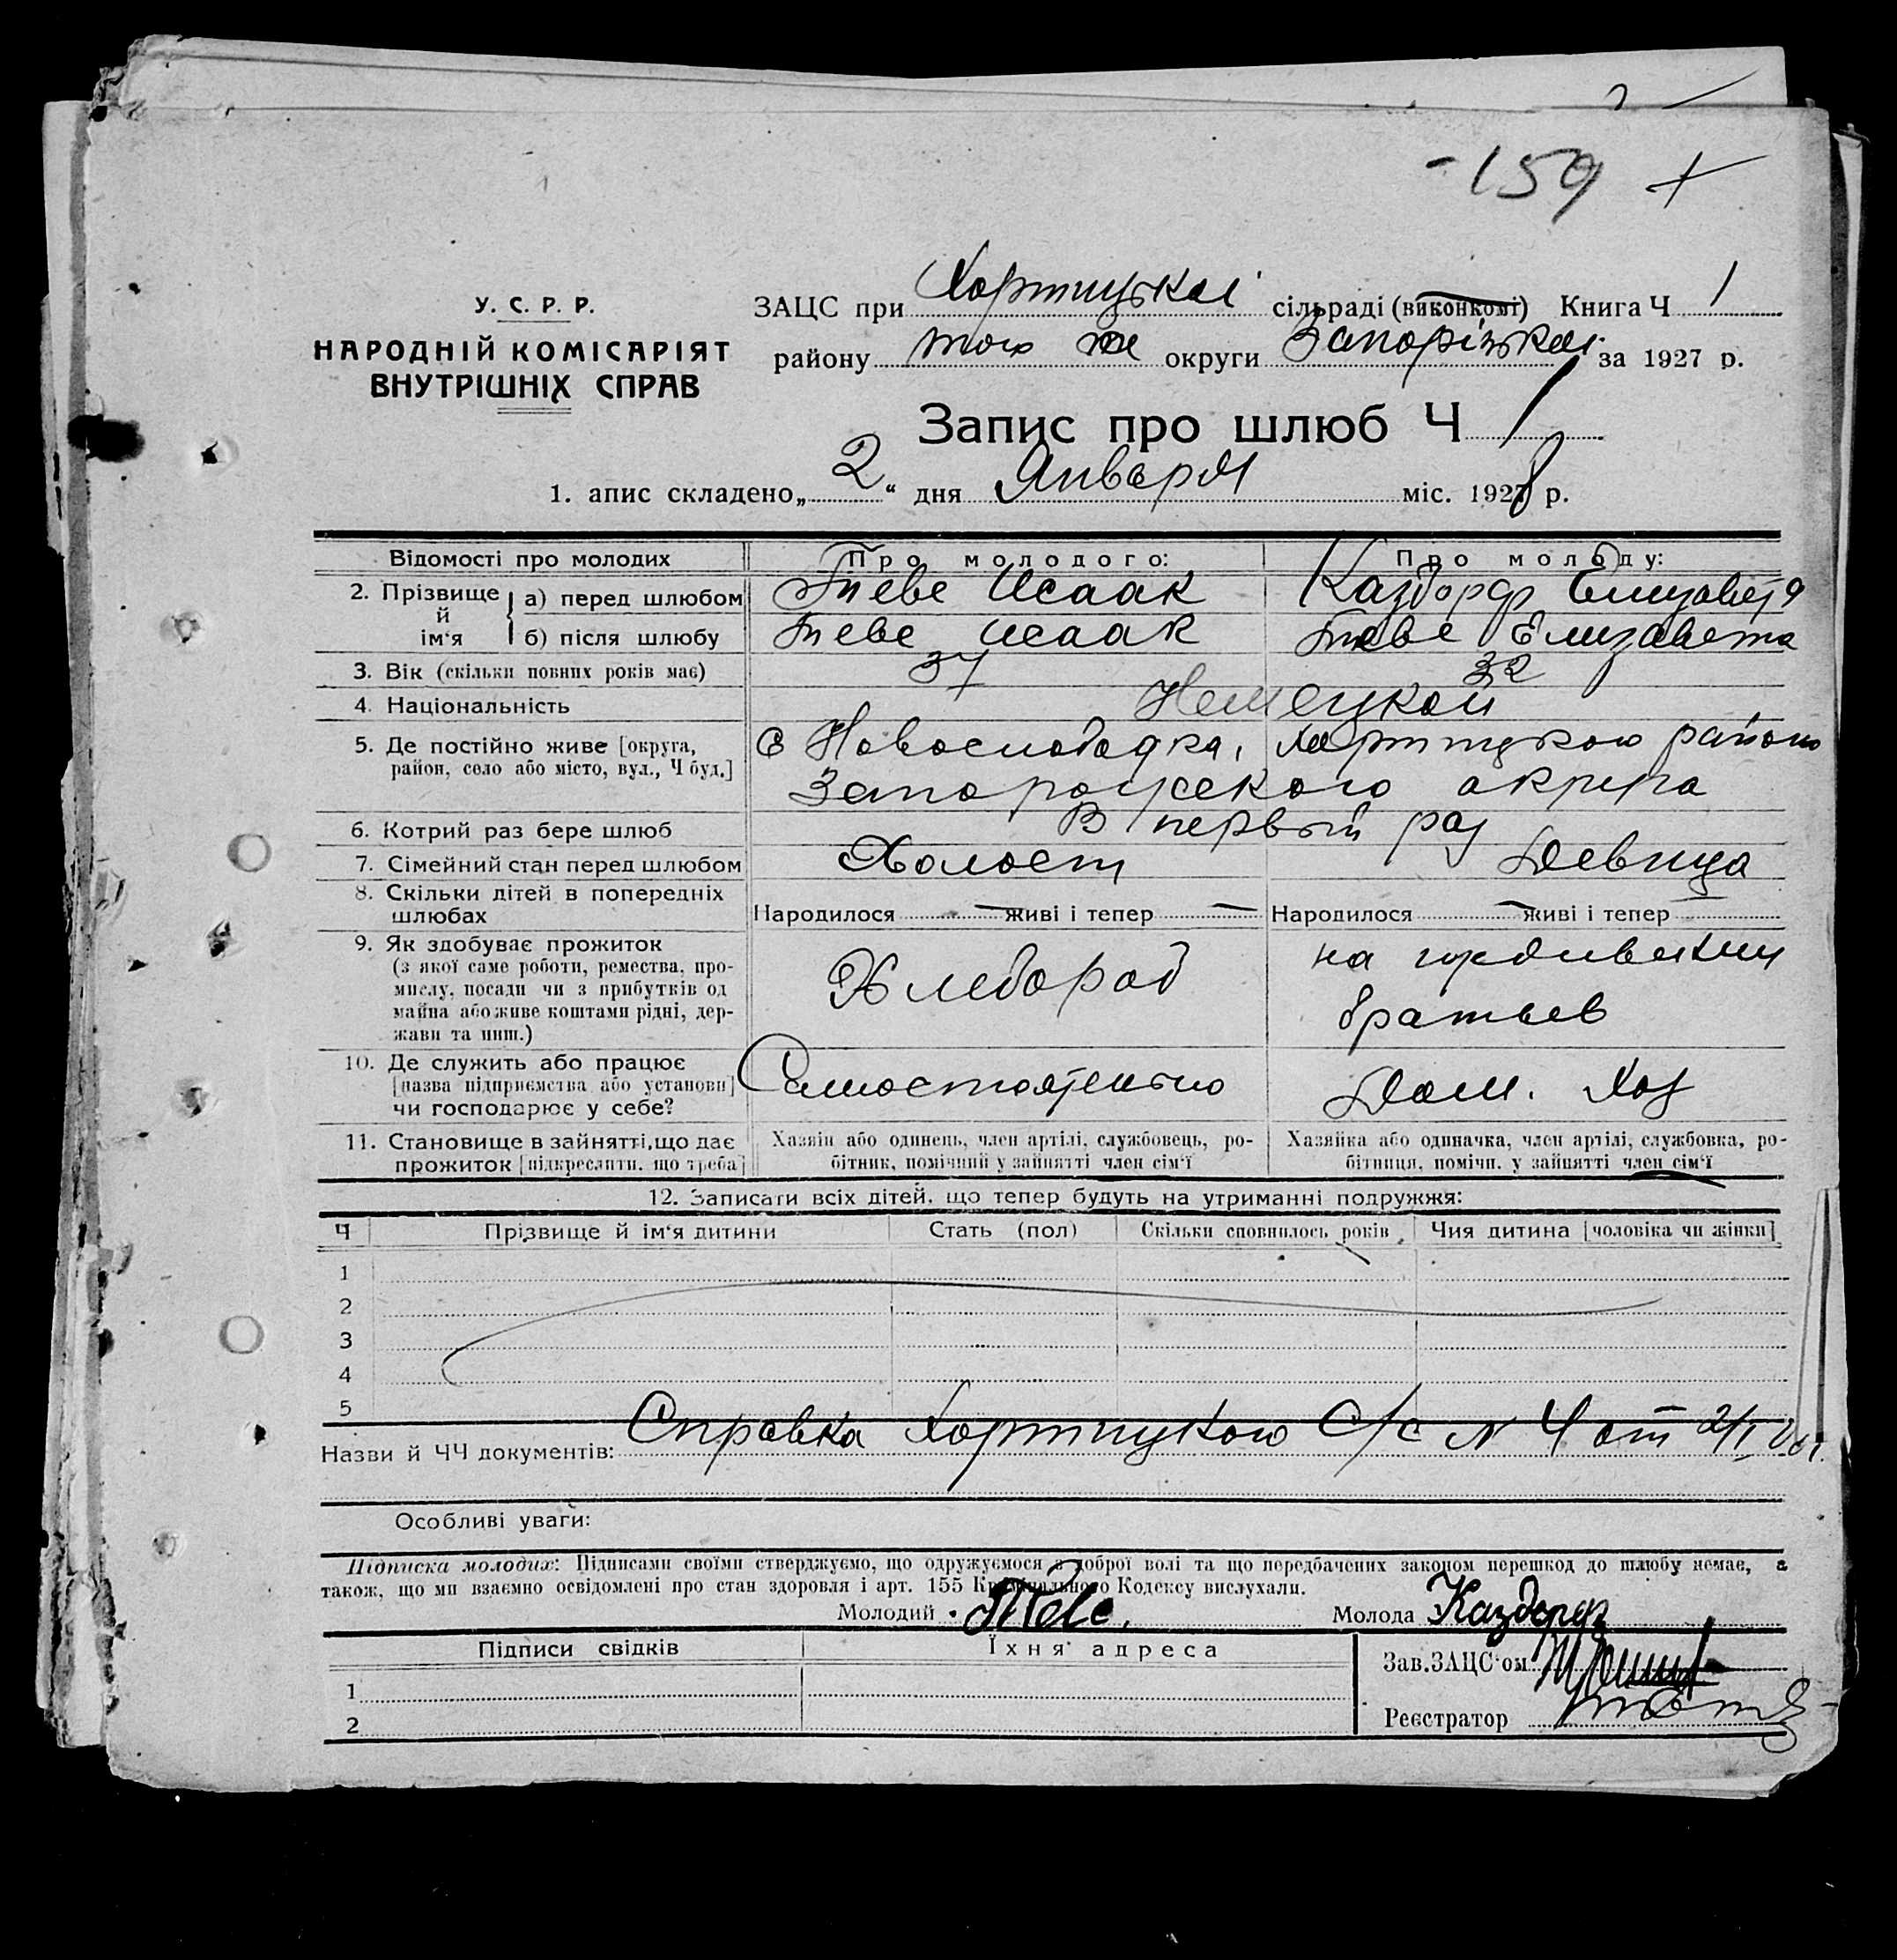 -159 +
У. С. Р. Р.
НАРОДНІЙ КОМІСАРІЯТ
ВНУТРІШНІХ СПРАВ
ЗАЦС при Хортицької сільраді (виконкомі) Книга Ч 1
району того же округи Запорізької за 1927 р.
Запис про шлюб Ч 1
1. апис складено „2“ дня Января міс. 1928 р.
Відомості про молодих Про молодого: Про молоду:
2. Прізвище й ім‘я а) перед шлюбом Тиве Исаак Каздорф Елизавета
б) після шлюбу Тиве Исаак Тиве Елизавета
3. Вік (скільки повних років має) 37 32
4. Національність Немецкой
5. Де постійно живе [округа, С Новослободка, Хортицкого района
район, село або місто, вул., Ч буд.] Запорожского округа
6. Котрий раз бере шлюб В первый раз
7. Сімейний стан перед шлюбом Холост Девица
8. Скільки дітей в попередніх
шлюбах Народилося — живі і тепер — Народилося — живі і тепер —
9. Як здобуває прожиток
(з якої саме роботи, ремества, про-
мислу, посади чи з прибутків од
майна або живе коштами рідні, дер-
жави та инш.) Хлебороб на иждивении
братьев
10. Де служить або працює
[назва підприємства або установи]
чи господарює у себе? Самостоятельно Дом. Хоз
11. Становище в зайнятті, що дає
прожиток [підкреслити. що треба]
Хазяїн або одинець, член артілі, службовець, ро-
бітник, помічний у зайнятті член сім‘ї
Хазяйка або одиначка, член артілі, службовка, ро-
бітниця, помічн. у зайнятті член сім‘ї
12. Записати всіх дітей, що тепер будуть на утриманні подружжя:
Ч Прізвище й ім‘я дитини Стать (пол) Скільки сповнилось років Чия дитина [чоловіка чи жінки]
1
2
3
4
5
Назви й ЧЧ документів: Справка Хортицкого С/с N 4 от 2/I
Особливі уваги:
Підписка молодих: Підписами своїми стверджуємо, що одружуємося з доброї волі та що передбачених законом перешкод до шлюбу немає, а
також, що ми взаємно освідомлені про стан здоровля і арт. 155 Кримінального Кодексу вислухали.
Молодий Тиве. Молода Казdорф
Підписи свідків Їхня адреса
Зав. ЗАЦС‘ом
1
2
Реєстратор